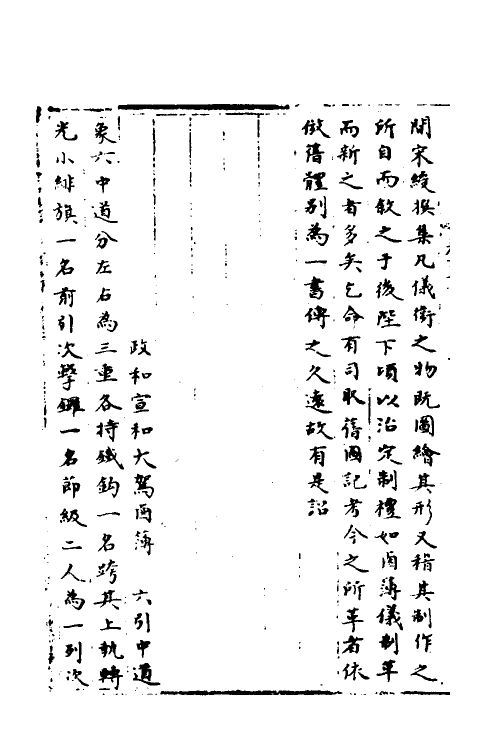 間宋綬撰集凡儀衛之物既圖繪其形又稽其制作之
所自而敘之于後陛下頃以治定制禮如鹵簿儀制革
而新之者多矣乞命有司取舊圖記考今之所革者依
倣舊體别為一書傳之久遠故有是詔
政和宣和大駕鹵簿 六引中道
象六中道分左右為三重各持鐵鈎一名跨其上執轉
光小緋旗一名前引次擊鑼一名節級二人為一列次